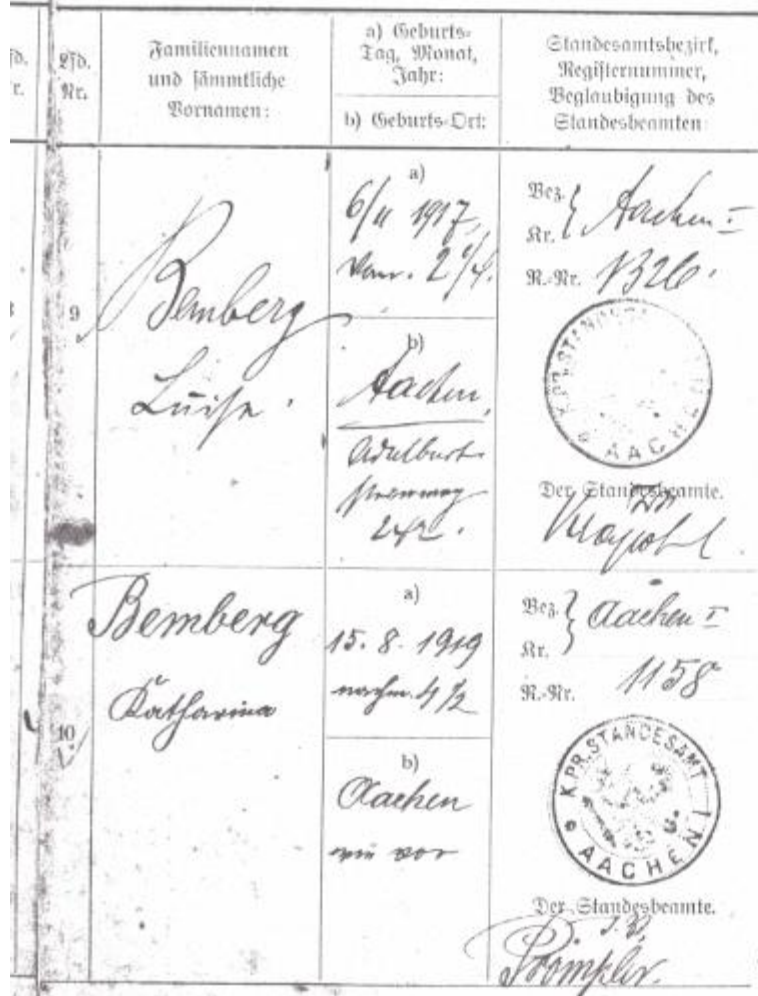 Lfd.
Nr.
Familiennamen
und sämmtliche
Vornamen:
a) Geburts-
Tag, Monat,
Jahr:
b) Geburts-Ort:
Standesamtsbezirk,
Registernummer,
Beglaubigung des
Standesbeamten:
9
Bemberg
Luise.
a)
6/11 1917,
b)
Aachen,
Adalbert-
Bez.
Kr.
Aachen I
R.-Nr. 1326.
K.PR.STANDESAMT
AACHEN
Der Standesbeamte.
10
Bemberg
Katharina
a)
15. 8. 1919
nachm. 4 1/2
b)
Aachen
wie vor
Bez.
Kr.
Aachen I
R.-Nr. 1158
K.PR.STANDESAMT
AACHEN I
Der Standesbeamte.